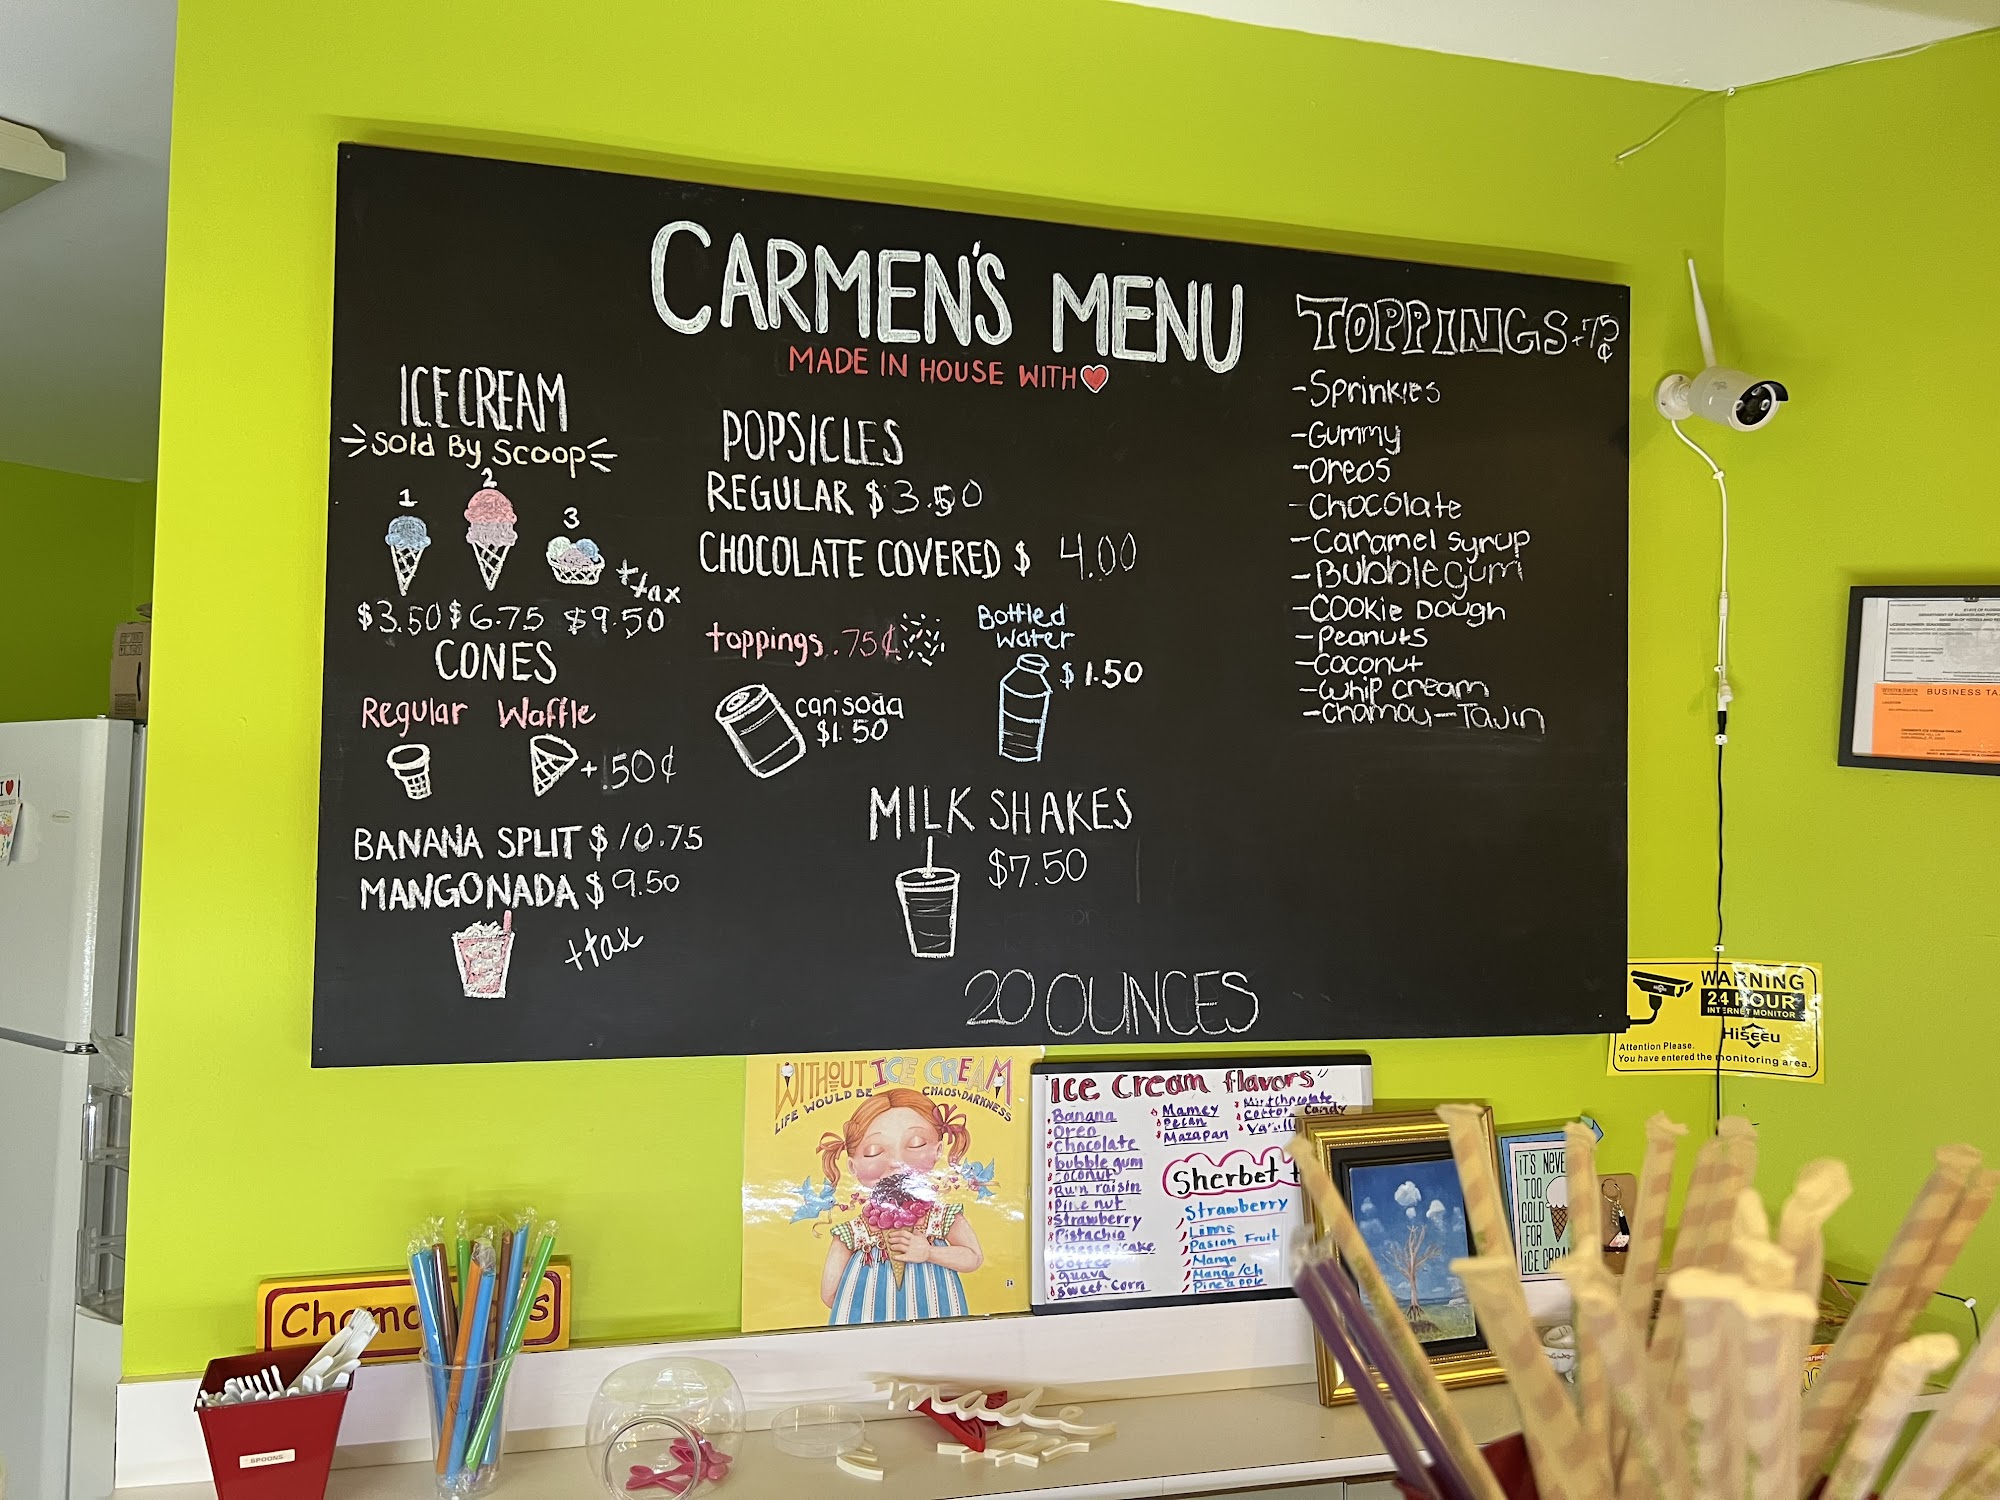 CARMEN'S MENU
MADE IN HOUSE WITH
ICE CREAM
Sold By Scoop
1 2 3
+tax
$3.50 $6.75 $9.50
CONES
Regular Waffle
+.50¢
BANANA SPLIT $10.75
MANGONADA $9.50
+tax
POPSICLES
REGULAR $3.50
CHOCOLATE COVERED $ 4.00
toppings .75¢
can soda
$1.50
Bottled
Water
$1.50
MILK SHAKES
$7.50
20 OUNCES
TOPPINGS +75¢
-Sprinkles
-Gummy
-Oreos
-Chocolate
-Caramel syrup
-Bubblegum
-Cookie Dough
-Peanuts
-Coconut
-Whip cream
-Chamoy-Tajin
BUSINESS TA
WARNING
24 HOUR
INTERNET MONITOR
HISEEU
Attention Please.
You have entered the monitoring area.
WITHOUT ICE CREAM
LIFE WOULD BE CHAOS & DARKNESS
"Ice Cream flavors"
Banana
Oreo
Chocolate
bubble gum
Coconut
Rum raisin
Pine nut
Strawberry
Pistachio
Cheesecake
Coffee
Guava
Sweet-Corn
Mamey
Pecan
Mazapan
Mintchocolate
Cotton Candy
Sherbet
Strawberry
Lime
Pasion Fruit
Mango
Mango/Ch
Pineapple
IT'S NEVE
TOO
COLD
FOR
ICE CREA
SPOONS
made